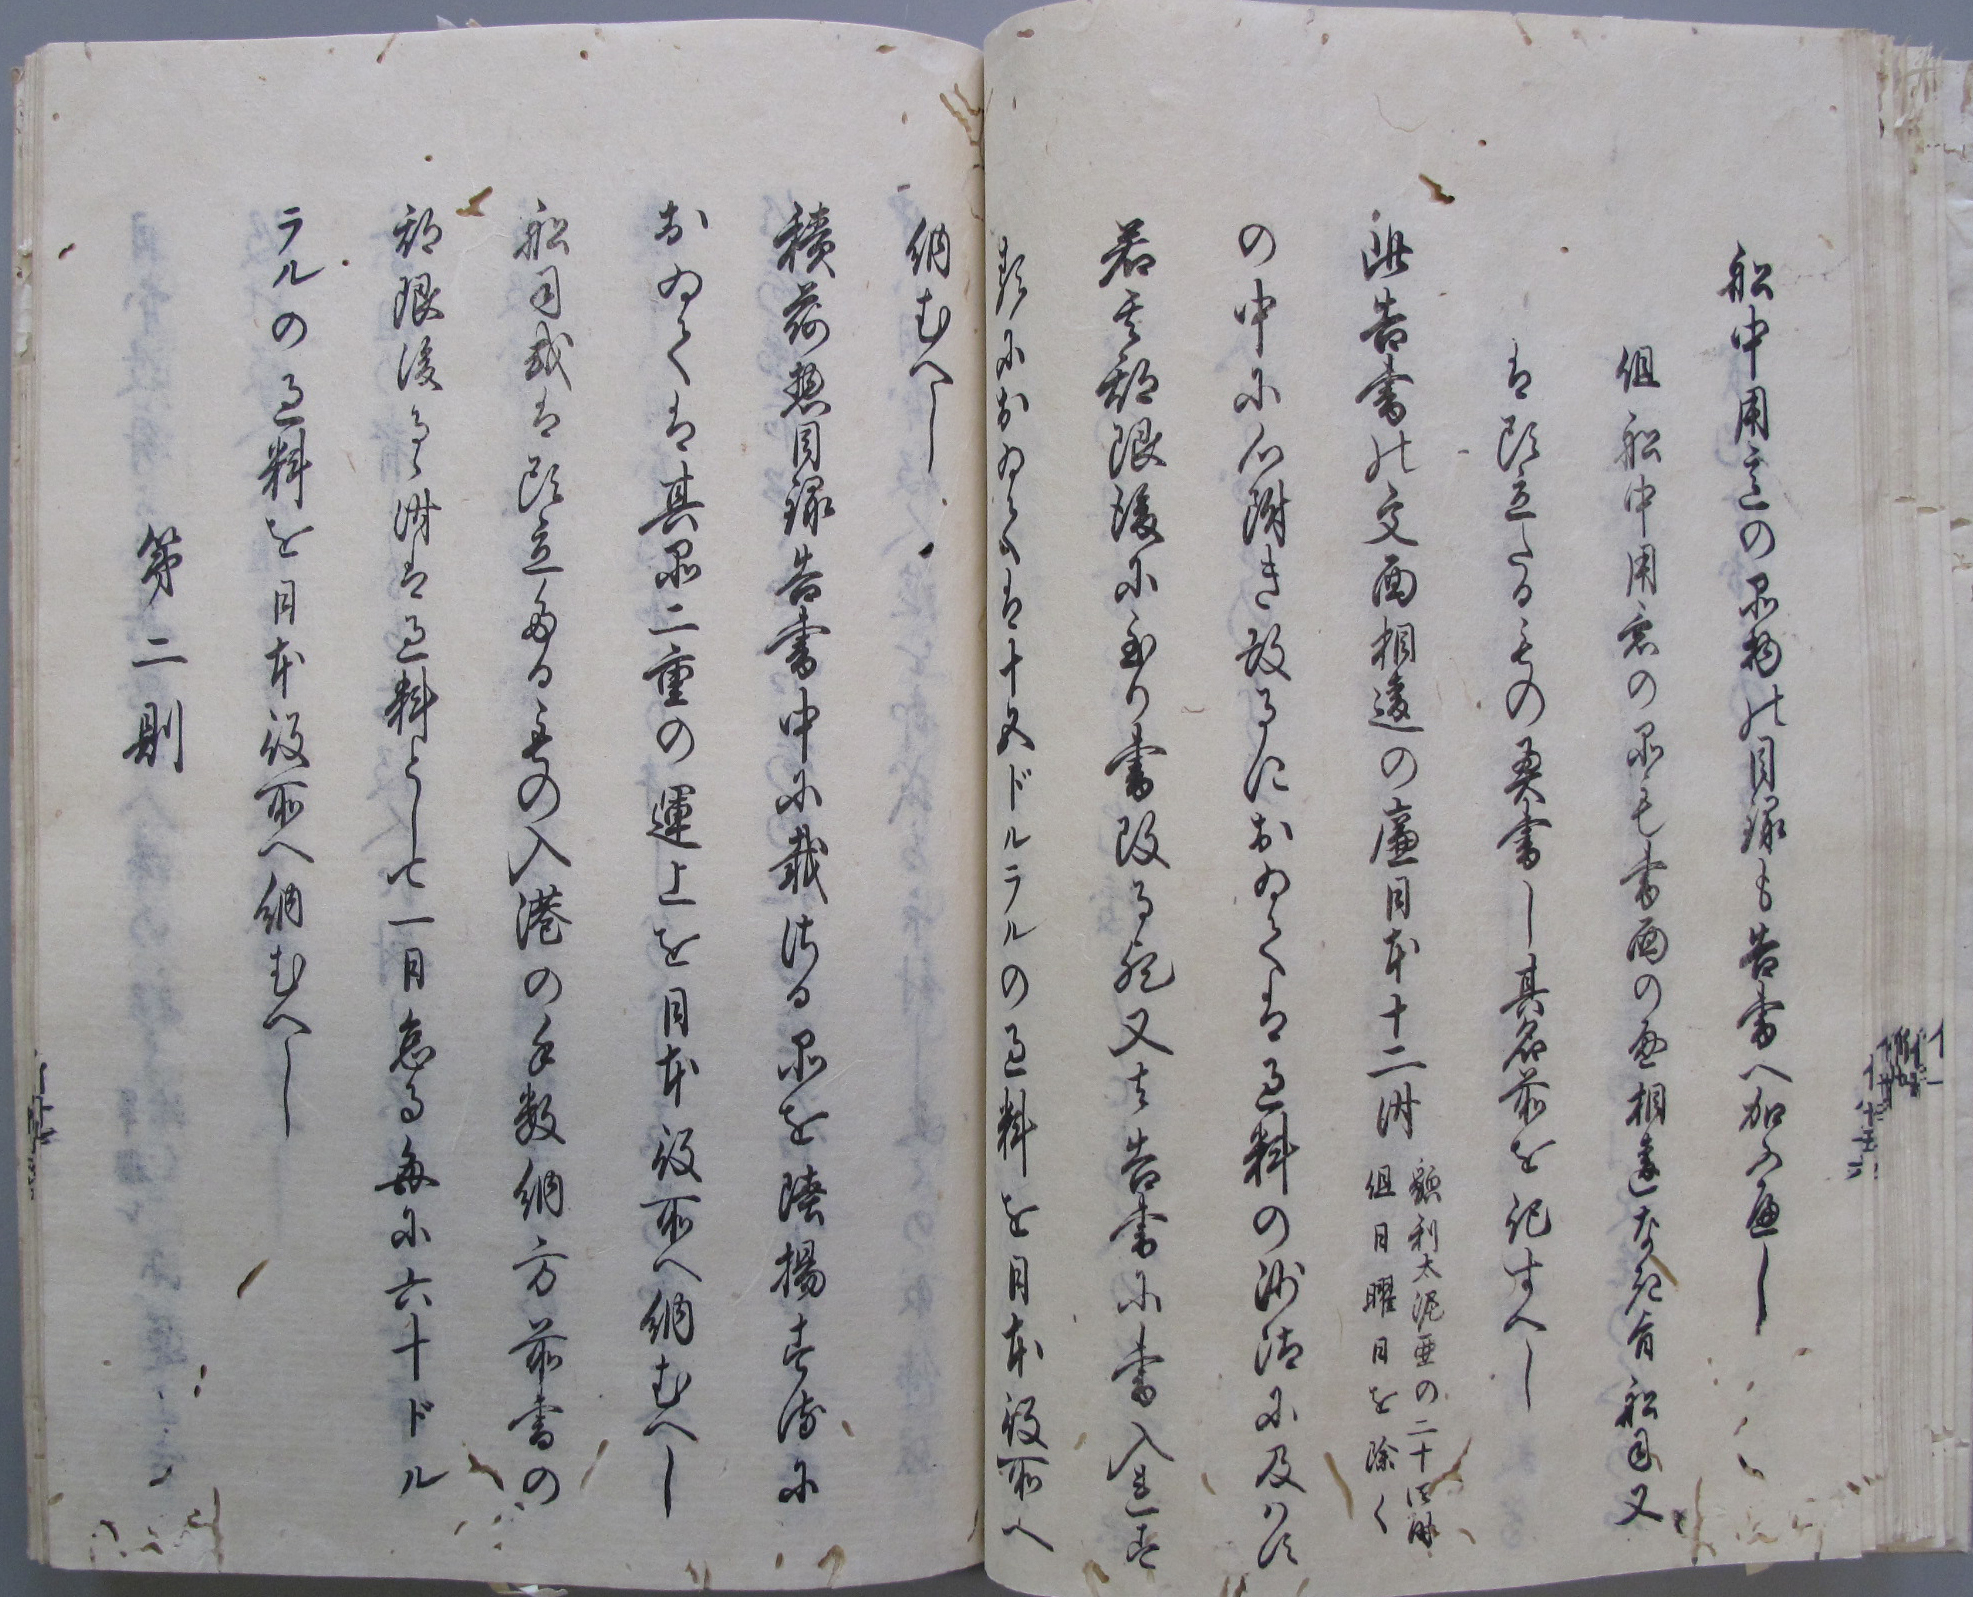 船中用意の品物の目録も告書へ加ふ遍し
但船中用意の品も書面の通相違なき旨船司又
は頭立たるもの奥書し其名前を記すへし
此告書の文面相違の廉日本十二時
額利太泥亜の二十四時
但日曜日を除く
の中に心附き改るにおゐては過料の沙汰に及はす
若其期限後に至り書改る歟又は告書に書入过す
類におゐては十五ドルラルの過料を日本役所へ
納むへし
積荷惣目録告書中に載せさる品を陸揚する時に
おゐては其品二重の運上を日本役所へ納むへし
船司或は頭立たるもの入港の手数納方前書の
期限後るゝ時は過料として一日怠る毎に六十ドル
ラルの過料を日本役所へ納むへし
第二則